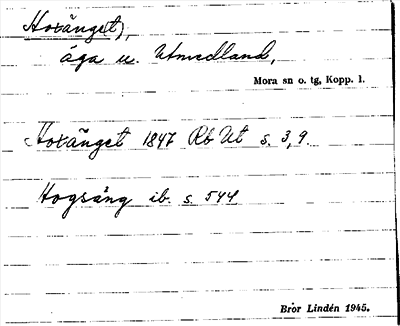 Hoxänget),
äga u. Utmedland,
Mora sn o. tg, Kopp. l.
Hoxänget 1847 Rb Ut s. 3, 9
Hogsäng ib. s. 544
Bror Lindén 1945.